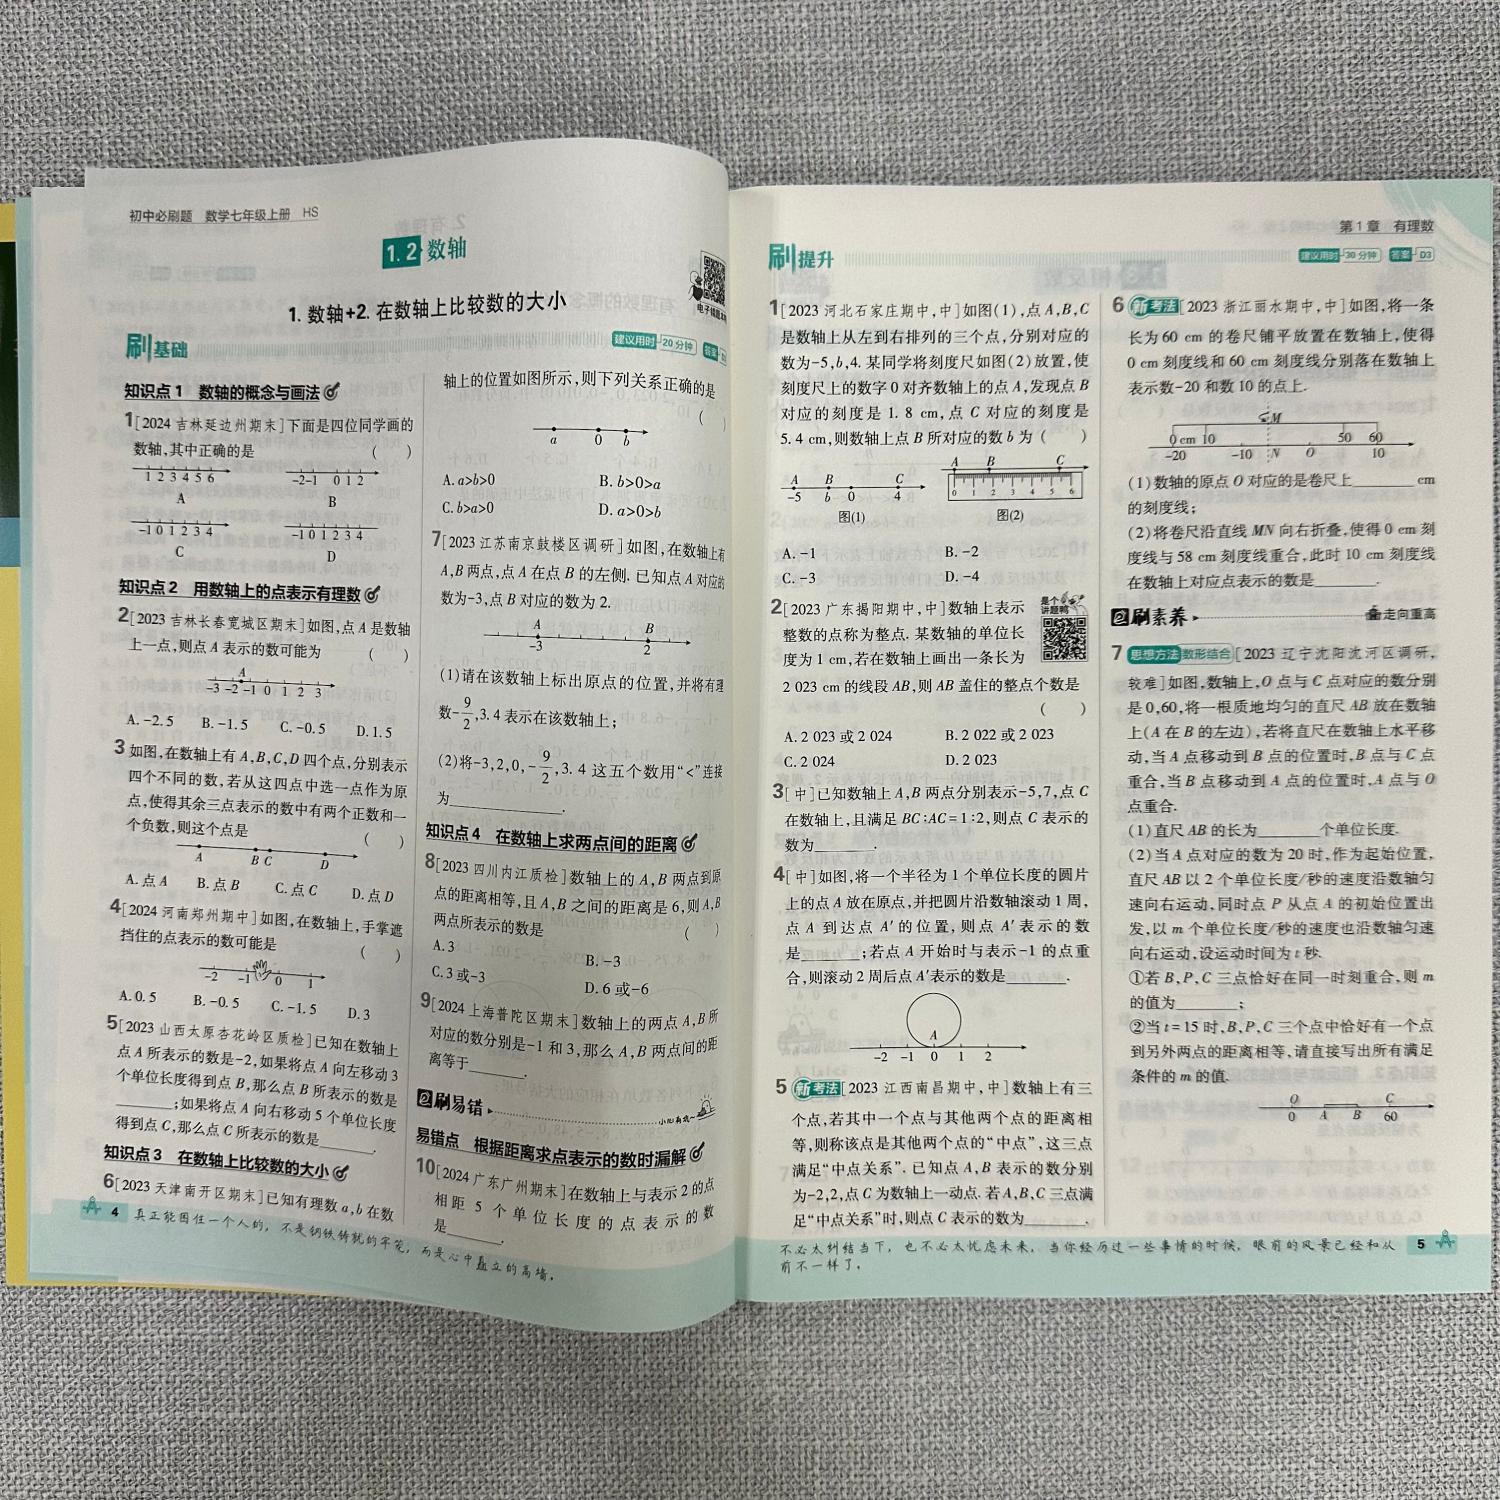 初中必刷题 数学七年级上册 HS
1.2 数轴
1. 数轴+2. 在数轴上比较数的大小
电子错题本
刷基础
建议用时 20分钟 答案
知识点1 数轴的概念与画法
1[2024吉林延边州期末]下面是四位同学画的
数轴,其中正确的是 ( )
1 2 3 4 5 6
A
-2-1 0 1 2
B
-1 0 1 2 3 4
C
-1 0 1 2 3 4
D
知识点2 用数轴上的点表示有理数
2[2023吉林长春宽城区期末]如图,点A是数轴
上一点,则点A表示的数可能为 ( )
A
-3 -2 -1 0 1 2 3
A.-2.5 B.-1.5 C.-0.5 D.1.5
3如图,在数轴上有A,B,C,D四个点,分别表示
四个不同的数,若从这四点中选一点作为原
点,使得其余三点表示的数中有两个正数和一
个负数,则这个点是 ( )
A B C D
A.点A B.点B C.点C D.点D
4[2024河南郑州期中]如图,在数轴上,手掌遮
挡住的点表示的数可能是 ( )
-2 -1 0 1
A.0.5 B.-0.5 C.-1.5 D.3
5[2023山西太原杏花岭区质检]已知在数轴上
点A所表示的数是-2,如果将点A向左移动3
个单位长度得到点B,那么点B所表示的数是
______;如果将点A向右移动5个单位长度
得到点C,那么点C所表示的数是______.
知识点3 在数轴上比较数的大小
6[2023天津南开区期末]已知有理数a,b在数
4 真正能困住一个人的,不是钢铁铸就的牢笼,而是心中矗立的高墙。
轴上的位置如图所示,则下列关系正确的是
( )
a 0 b
A.a>b>0 B.b>0>a
C.b>a>0 D.a>0>b
7[2023江苏南京鼓楼区调研]如图,在数轴上有
A,B两点,点A在点B的左侧.已知点A对应的
数为-3,点B对应的数为2.
A B
-3 2
(1)请在该数轴上标出原点的位置,并将有理
数-9/2,3.4表示在该数轴上;
(2)将-3,2,0,-9/2,3.4这五个数用“<”连接
为______.
知识点4 在数轴上求两点间的距离
8[2023四川内江质检]数轴上的A,B两点到原
点的距离相等,且A,B之间的距离是6,则A,B
两点所表示的数是 ( )
A.3 B.-3
C.3或-3 D.6或-6
9[2024上海普陀区期末]数轴上的两点A,B所
对应的数分别是-1和3,那么A,B两点间的距
离等于______.
刷易错
小心有坑~
易错点 根据距离求点表示的数时漏解
10[2024广东广州期末]在数轴上与表示2的点
相距5个单位长度的点表示的数
是______.
第1章 有理数
刷提升
建议用时 30分钟 答案 D3
1[2023河北石家庄期中,中]如图(1),点A,B,C
是数轴上从左到右排列的三个点,分别对应的
数为-5,b,4.某同学将刻度尺如图(2)放置,使
刻度尺上的数字0对齐数轴上的点A,发现点B
对应的刻度是1.8 cm,点C对应的刻度是
5.4 cm,则数轴上点B所对应的数b为( )
A B C
-5 b 0 4
图(1)
A B C
0 1 2 3 4 5 6
图(2)
A.-1 B.-2
C.-3 D.-4
2[2023广东揭阳期中,中]数轴上表示
整数的点称为整点.某数轴的单位长
度为1 cm,若在数轴上画出一条长为
2 023 cm的线段AB,则AB盖住的整点个数是
( )
是个
讲题鸭
A.2 023或2 024 B.2 022或2 023
C.2 024 D.2 023
3[中]已知数轴上A,B两点分别表示-5,7,点C
在数轴上,且满足BC:AC=1:2,则点C表示的
数为______.
4[中]如图,将一个半径为1个单位长度的圆片
上的点A放在原点,并把圆片沿数轴滚动1周,
点A到达点A′的位置,则点A′表示的数
是______;若点A开始时与表示-1的点重
合,则滚动2周后点A′表示的数是______.
A
-2 -1 0 1 2
5 新考法[2023江西南昌期中,中]数轴上有三
个点,若其中一个点与其他两个点的距离相
等,则称该点是其他两个点的“中点”,这三点
满足“中点关系”.已知点A,B表示的数分别
为-2,2,点C为数轴上一动点.若A,B,C三点满
足“中点关系”时,则点C表示的数为______.
6 新考法[2023浙江丽水期中,中]如图,将一条
长为60 cm的卷尺铺平放置在数轴上,使得
0 cm刻度线和60 cm刻度线分别落在数轴上
表示数-20和数10的点上.
M
0 cm 10 50 60
-20 -10 N O 10
(1)数轴的原点O对应的是卷尺上______cm
的刻度线;
(2)将卷尺沿直线MN向右折叠,使得0 cm刻
度线与58 cm刻度线重合,此时10 cm刻度线
在数轴上对应点表示的数是______.
刷素养
走向重高
7 思想方法 数形结合[2023辽宁沈阳沈河区调研,
较难]如图,数轴上,O点与C点对应的数分别
是0,60,将一根质地均匀的直尺AB放在数轴
上(A在B的左边),若将直尺在数轴上水平移
动,当A点移动到B点的位置时,B点与C点
重合,当B点移动到A点的位置时,A点与O
点重合.
(1)直尺AB的长为______个单位长度.
(2)当A点对应的数为20时,作为起始位置,
直尺AB以2个单位长度/秒的速度沿数轴匀
速向右运动,同时点P从点A的初始位置出
发,以m个单位长度/秒的速度也沿数轴匀速
向右运动,设运动时间为t秒.
①若B,P,C三点恰好在同一时刻重合,则m
的值为______;
②当t=15时,B,P,C三个点中恰好有一个点
到另外两点的距离相等,请直接写出所有满足
条件的m的值.
O C
0 A B 60
不必太纠结当下,也不必太忧虑未来,当你经历过一些事情的时候,眼前的风景已经和从
前不一样了。
5